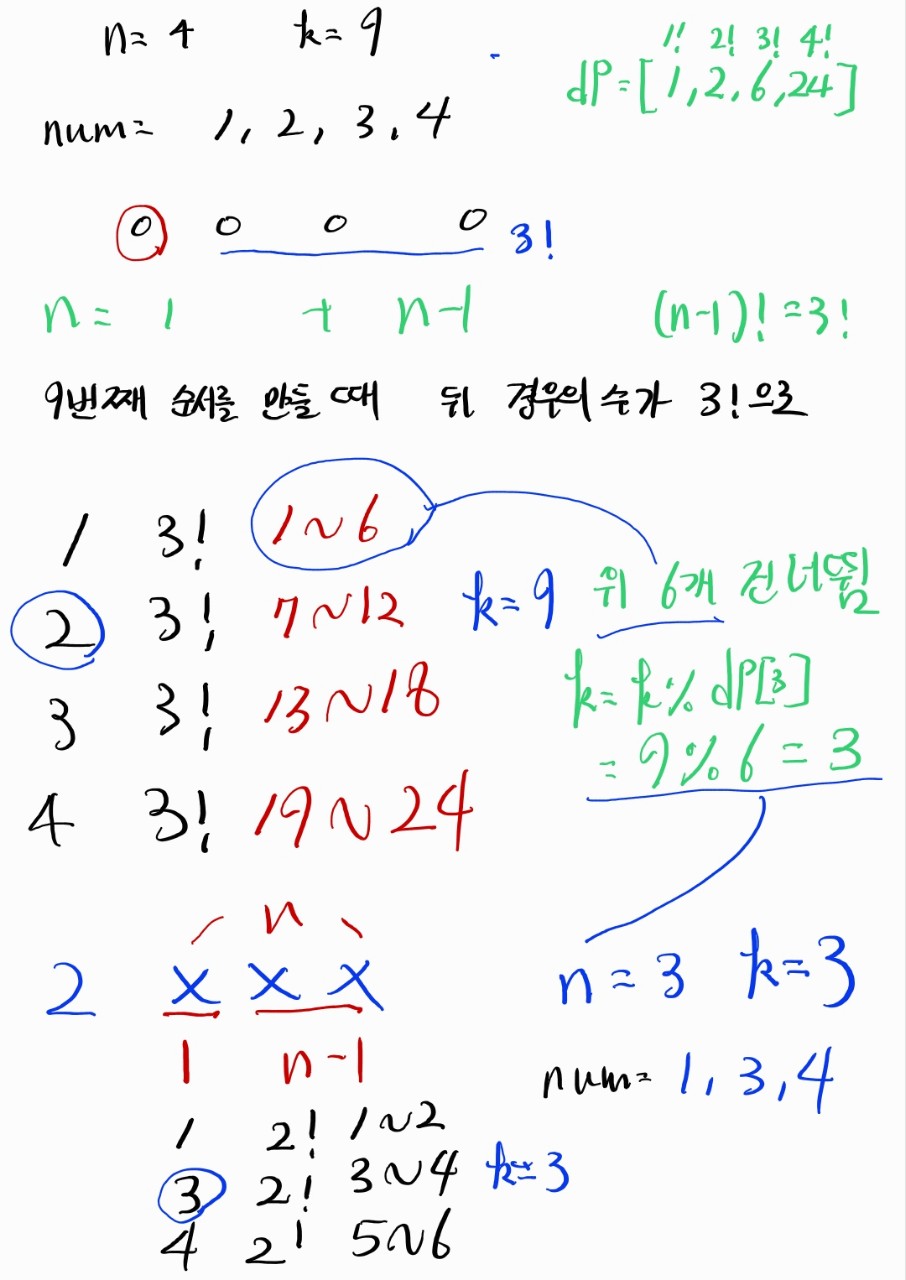 n= 4 k= 9
1! 2! 3! 4!
dP=[1,2,6,24]
num= 1, 2, 3, 4
0 0 0 0 3!
n= 1 + n-1 (n-1)! =3!
9번째 순서를 만들 때 뒤 경우의 수가 3!으로
1 3! 1~6
2 3! 7~12 k=9 위 6개 건너뜀
3 3! 13~18 k= k% dP[3]
= 9%6 = 3
4 3! 19~24
n
2 x x x n=3 k=3
1 n-1
num= 1, 3, 4
1 2! 1~2
3 2! 3~4 k=3
4 2! 5~6